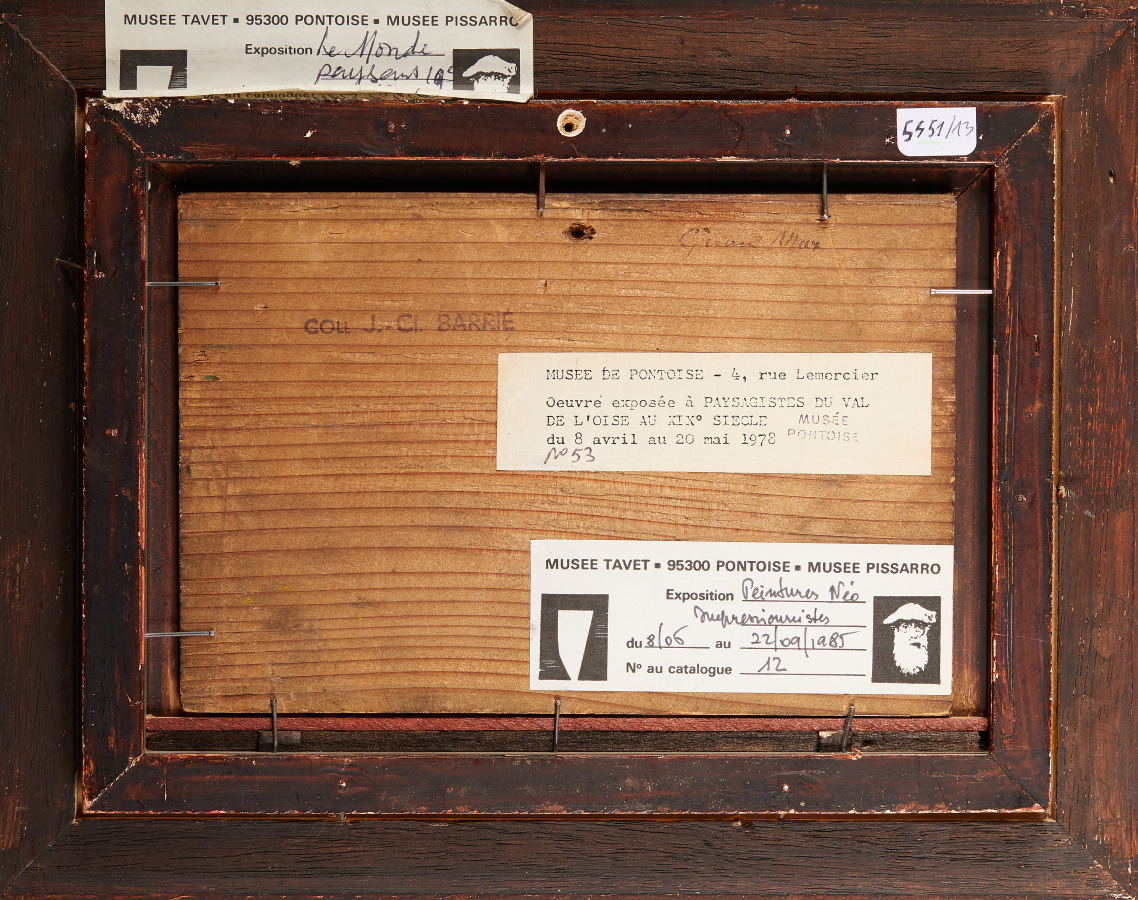 MUSEE TAVET ▪ 95300 PONTOISE ▪ MUSEE PISSARRO
Exposition Le Monde
paysans 19e
5551/13
COLL J.-Cl. BARRIÉ
MUSEE DE PONTOISE - 4, rue Lemercier
Oeuvre exposée à PAYSAGISTES DU VAL
DE L'OISE AU XIX° SIECLE MUSÉE
du 8 avril au 20 mai 1978 PONTOISE
N° 53
MUSEE TAVET ▪ 95300 PONTOISE ▪ MUSEE PISSARRO
Exposition Peintures Néo
Impressionnistes
du 8/06 au 22/09/1985
N° au catalogue 12